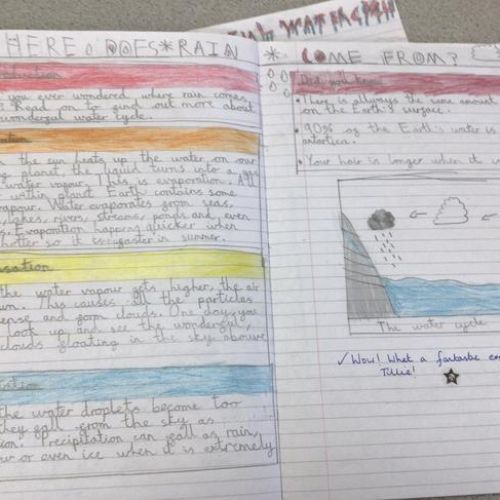 HERE DOES RAIN
COME FROM?
you ever wondered where rain comes
Read on to find out more about
wonderful water cycle.
the sun heats up the water on our
planet, the liquid turns into a gas
water vapour. This is evaporation. All
within about Earth contains some
vapour. Water evaporates from seas,
lakes, rivers, streams, ponds and even
Evaporation happens quicker when
hotter so it is faster in summer.
sation
the water vapour gets higher, the air
This causes all the particles
ense and form clouds. One day, you
look up and see the wonderful,
clouds floating in the sky above
the water droplets become too
they fall from the sky as
ion. Precipitation can fall as rain,
or even ice when it is extremely
Did you know
• There is allways the same amount
on the Earth's surface.
• 90% of the Earth's water is
• Your hair is longer when it
The water cycle
✓ Wow! What a fantastic
Tillie!